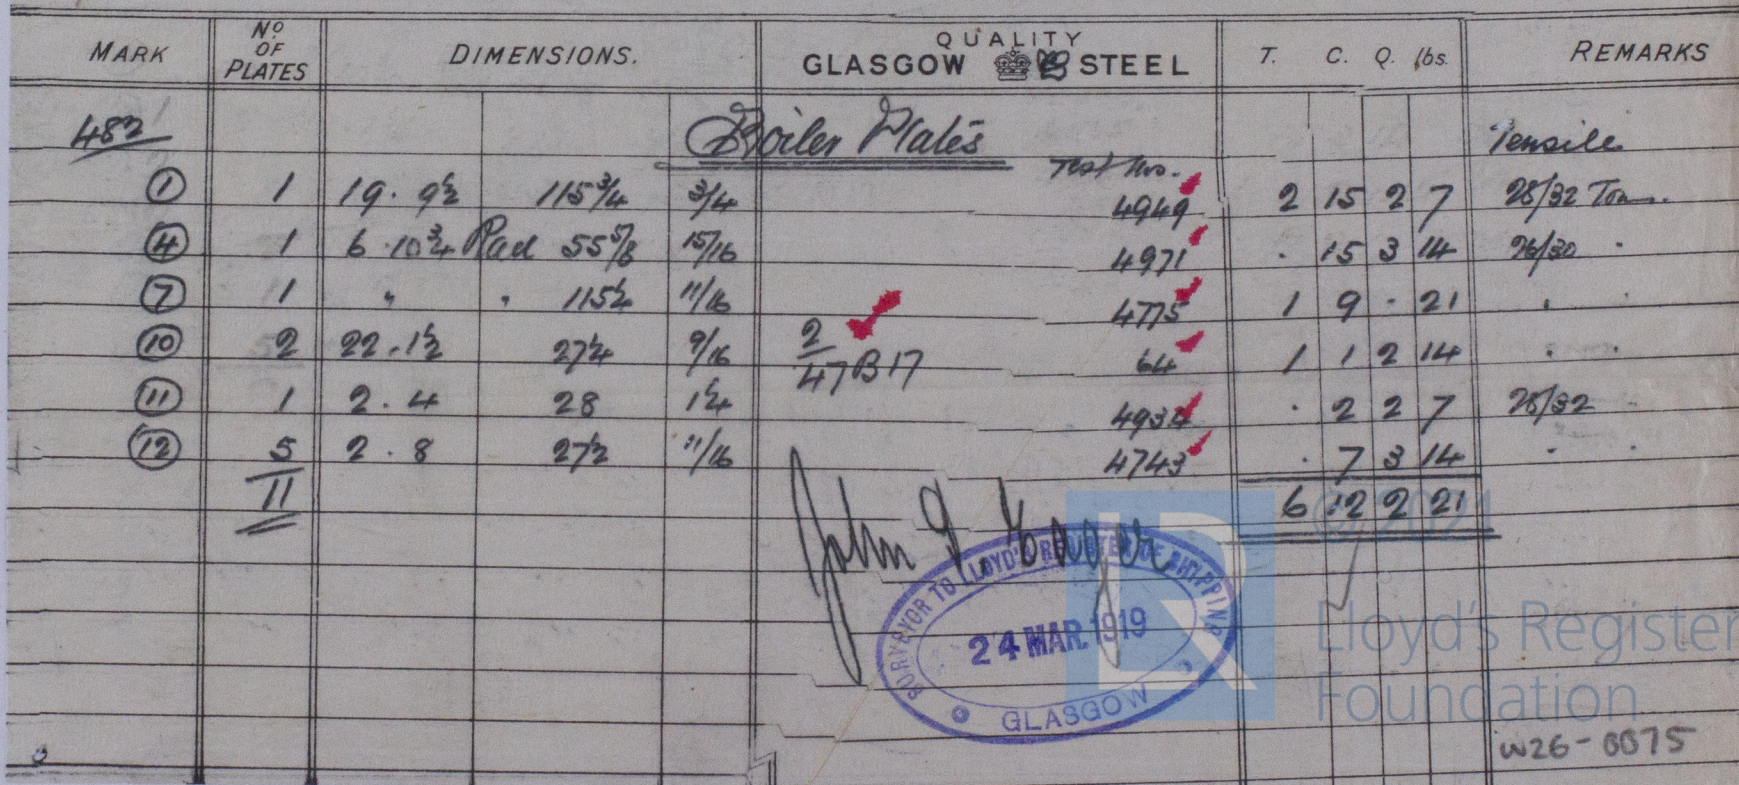 MARK Nº OF PLATES DIMENSIONS. QUALITY GLASGOW STEEL T. C. Q. lbs. REMARKS
482 Boiler Plates Tensile
Test Nos.
1 1 19 . 9½ 115¾ 3/4 4949 2 15 2 7 28/32 Tons.
4 1 6 . 10¾ Rad 55⅝ 15/16 4971 . 15 3 14 26/30 "
7 1 " " 115¼ 11/16 4775 1 9 . 21 " "
10 2 22 . 1½ 27¼ 9/16 2/47B17 64 1 1 2 14 " "
11 1 2 . 4 28 1¼ 4934 . 2 2 7 28/32 "
12 5 2 . 8 27½ 11/16 4743 . 7 3 14 " "
11 6 12 2 21
John
SURVEYOR TO LLOYD'S REGISTER OF SHIPPING
24 MAR. 1919
GLASGOW
© 2021
LR
Lloyd's Register
Foundation
W26-0075